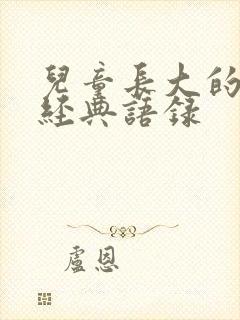 兒童長大的
經典語錄
盧恩